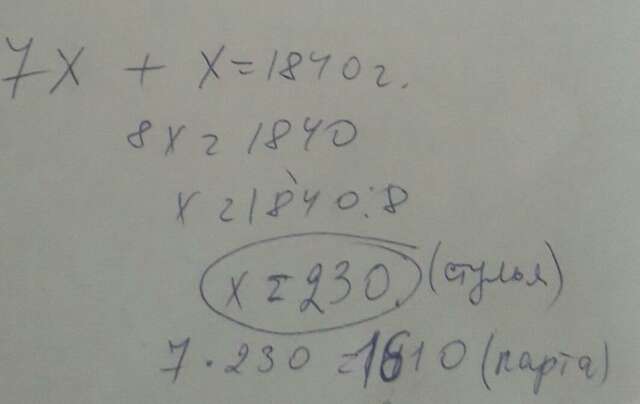 7x + x = 1840 г.
8x = 1840
x = 1840 : 8
x = 230. (стулья)
7 · 230 = 1610 (парта)